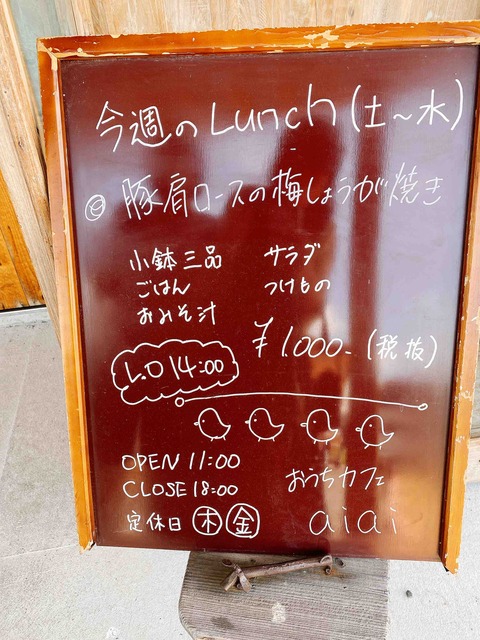 今週のLunch(土~水)
◎ 豚肩ロースの梅しょうが焼き
小鉢三品 サラダ
ごはん つけもの
おみそ汁
¥1.000- (税抜)
L.O 14:00
OPEN 11:00
CLOSE 18:00
定休日 木 金
おうちカフェ
aiai